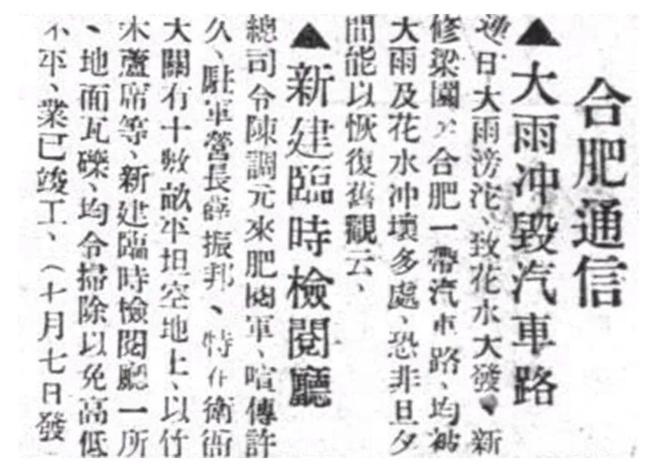 合肥通信
▲大雨冲毀汽車路
連日大雨滂沱、致花水大發、新
修梁園至合肥一帶汽車路、均被
大雨及花水冲壞多處、恐非旦夕
間能以恢復舊觀云、
▲新建臨時檢閱廳
總司令陳調元來肥閱軍、喧傳許
久、駐軍營長薛振邦、特在衛衙
大關有十數畝平坦空地上、以竹
木蘆席等、新建臨時檢閱廳一所
、地面瓦礫、均令掃除以免高低
不平、業已竣工、（十月七日發